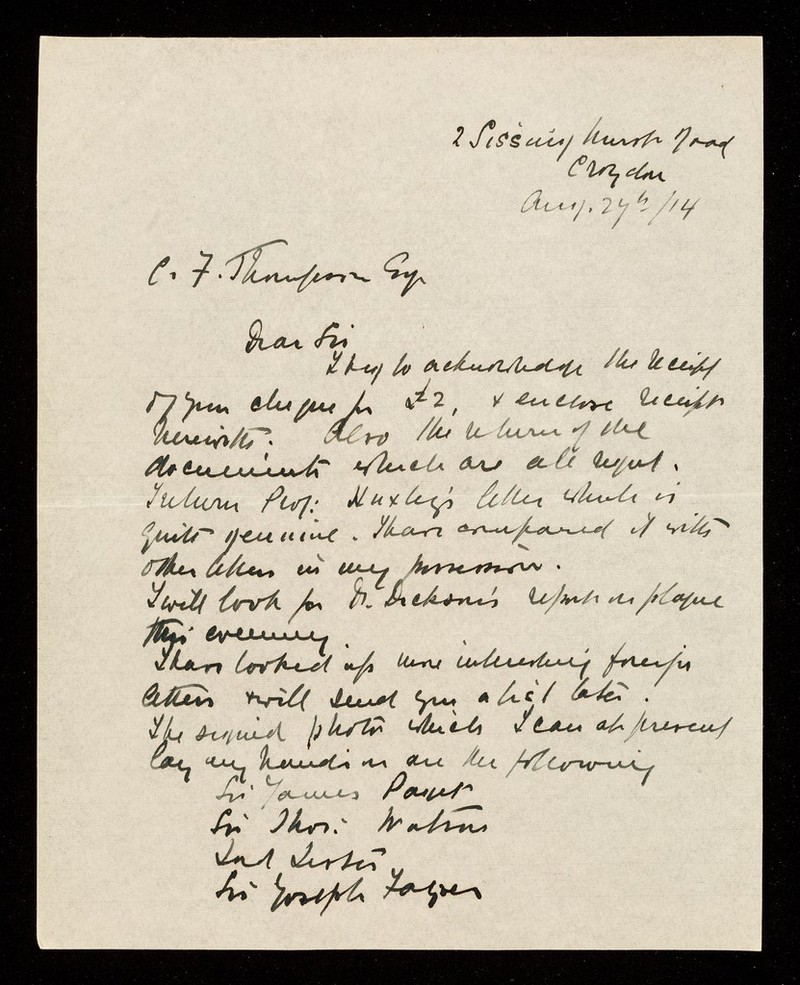 2 Sissinghurst Road
Croydon
Aug. 27th/14
C. F. Thompson Esq
Dear Sir
I beg to acknowledge the receipt
of your cheque for £2, & enclose receipt
herewith. Also the return of the
documents which are all right.
I return Prof: Huxley's letter which is
quite genuine. I have compared it with
other letters in my possession.
I will look for Dr. Dickson's report on plague
this evening
I have looked up more interesting foreign
letters & will send you a list later.
The signed photos which I can at present
lay my hands on are the following
Sir James Paget
Sir Thos: Watson
Lord Lister
Sir Joseph Fayrer